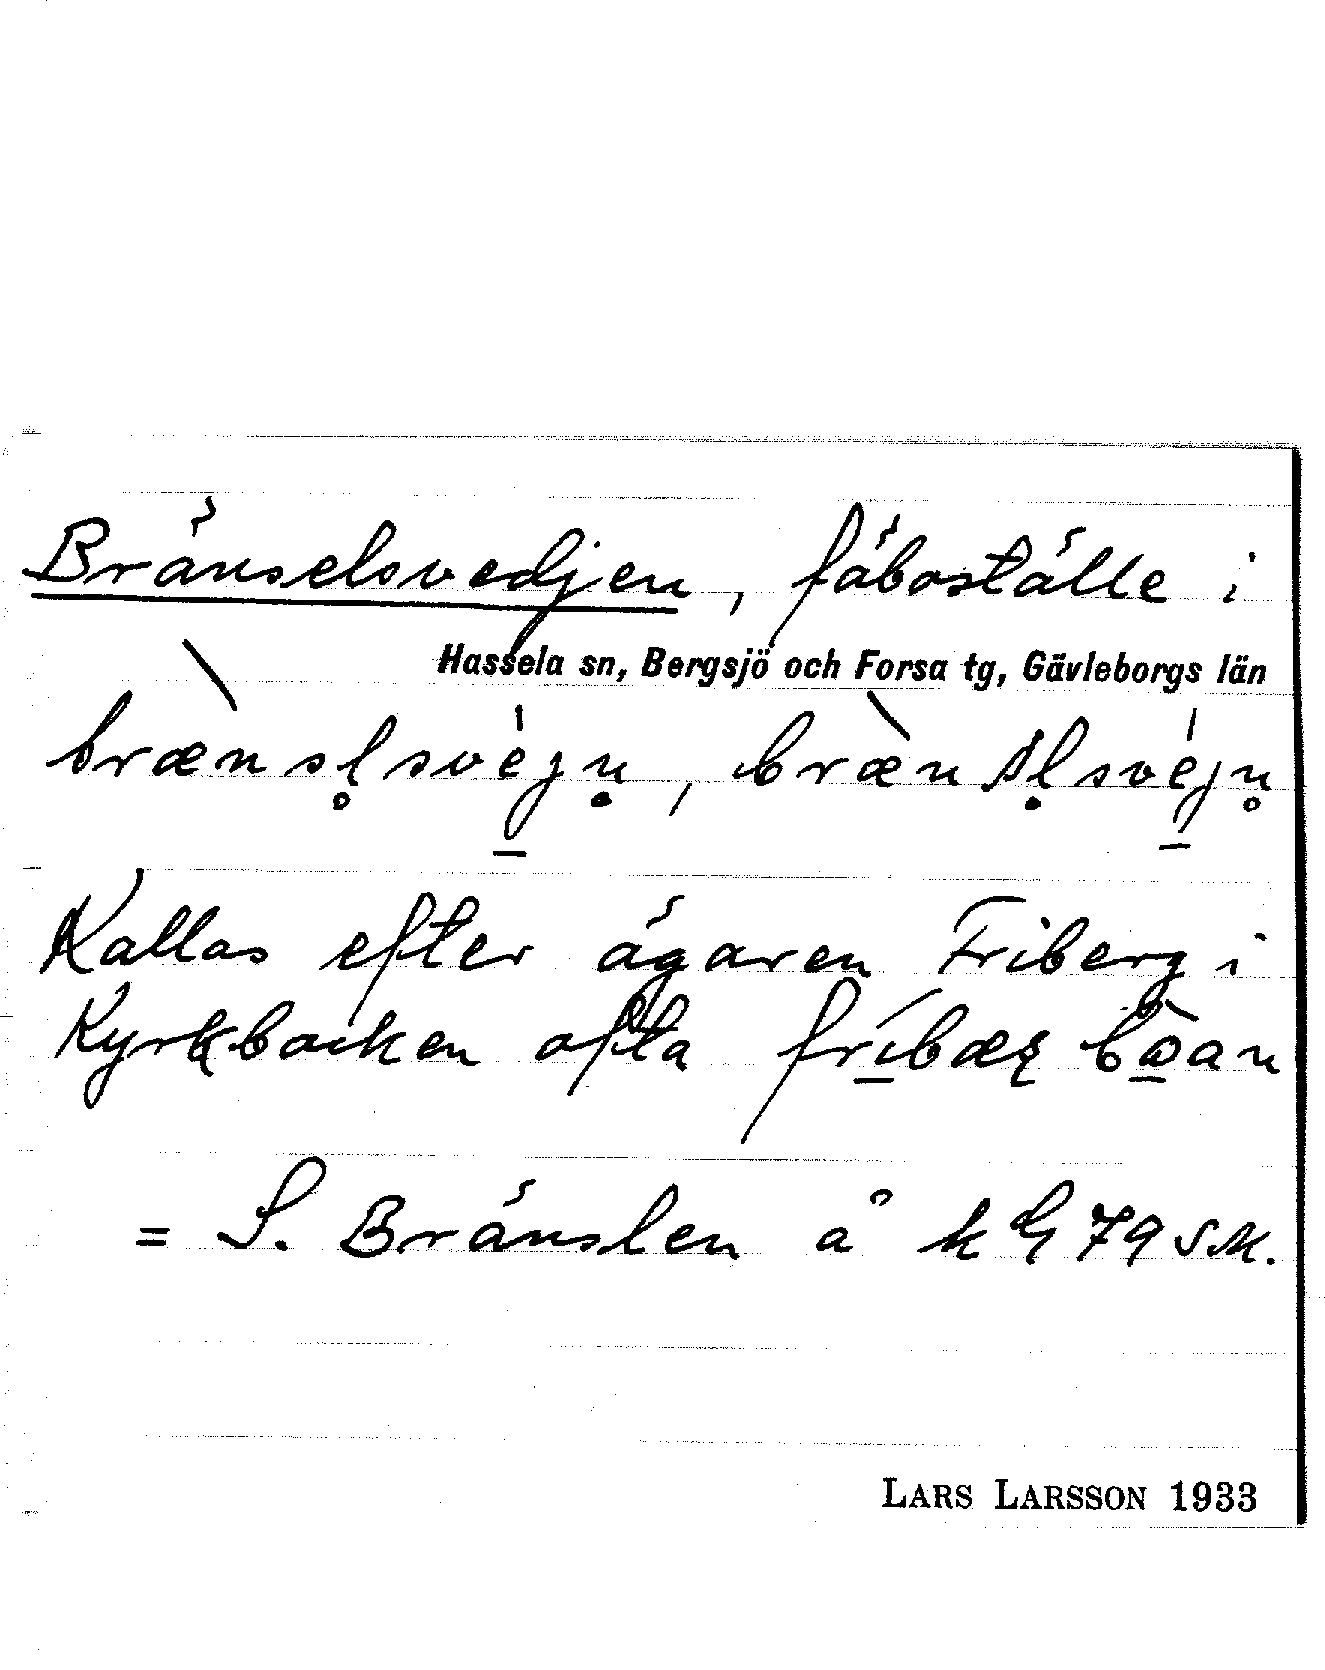 Bränselsvedjen, fäboställe i
Hassela sn, Bergsjö och Forsa tg, Gävleborgs län
bræ̀nsl̥svéjn̥, bræ̀nsl̥svéjn̥
Kallas efter ägaren Friberg i
Kyrkbacken ofta fríbær bòan
= S. Bränslen å kG 79 SM.
LARS LARSSON 1933